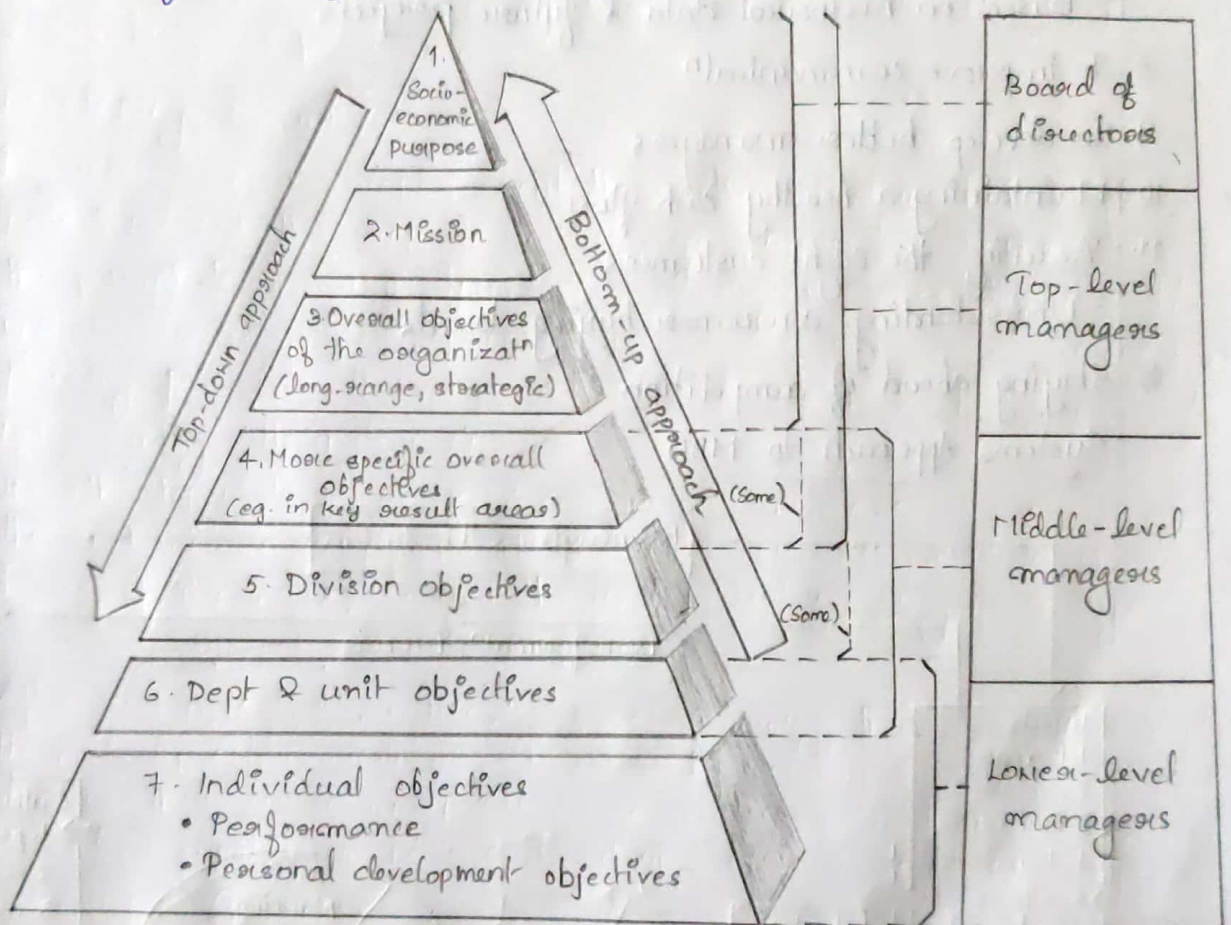 1.
Socio-
economic
purpose
2. Mission
3. Overall objectives
of the organizatn
(long-range, strategic)
4. More specific overall
objectives
(eg. in key result areas)
5. Division objectives
6. Dept & unit objectives
7. Individual objectives
• Performance
• Personal development objectives
Top-down approach
Bottom-up approach
(Some)
(Some)
Board of
directors
Top-level
managers
Middle-level
managers
Lower-level
managers